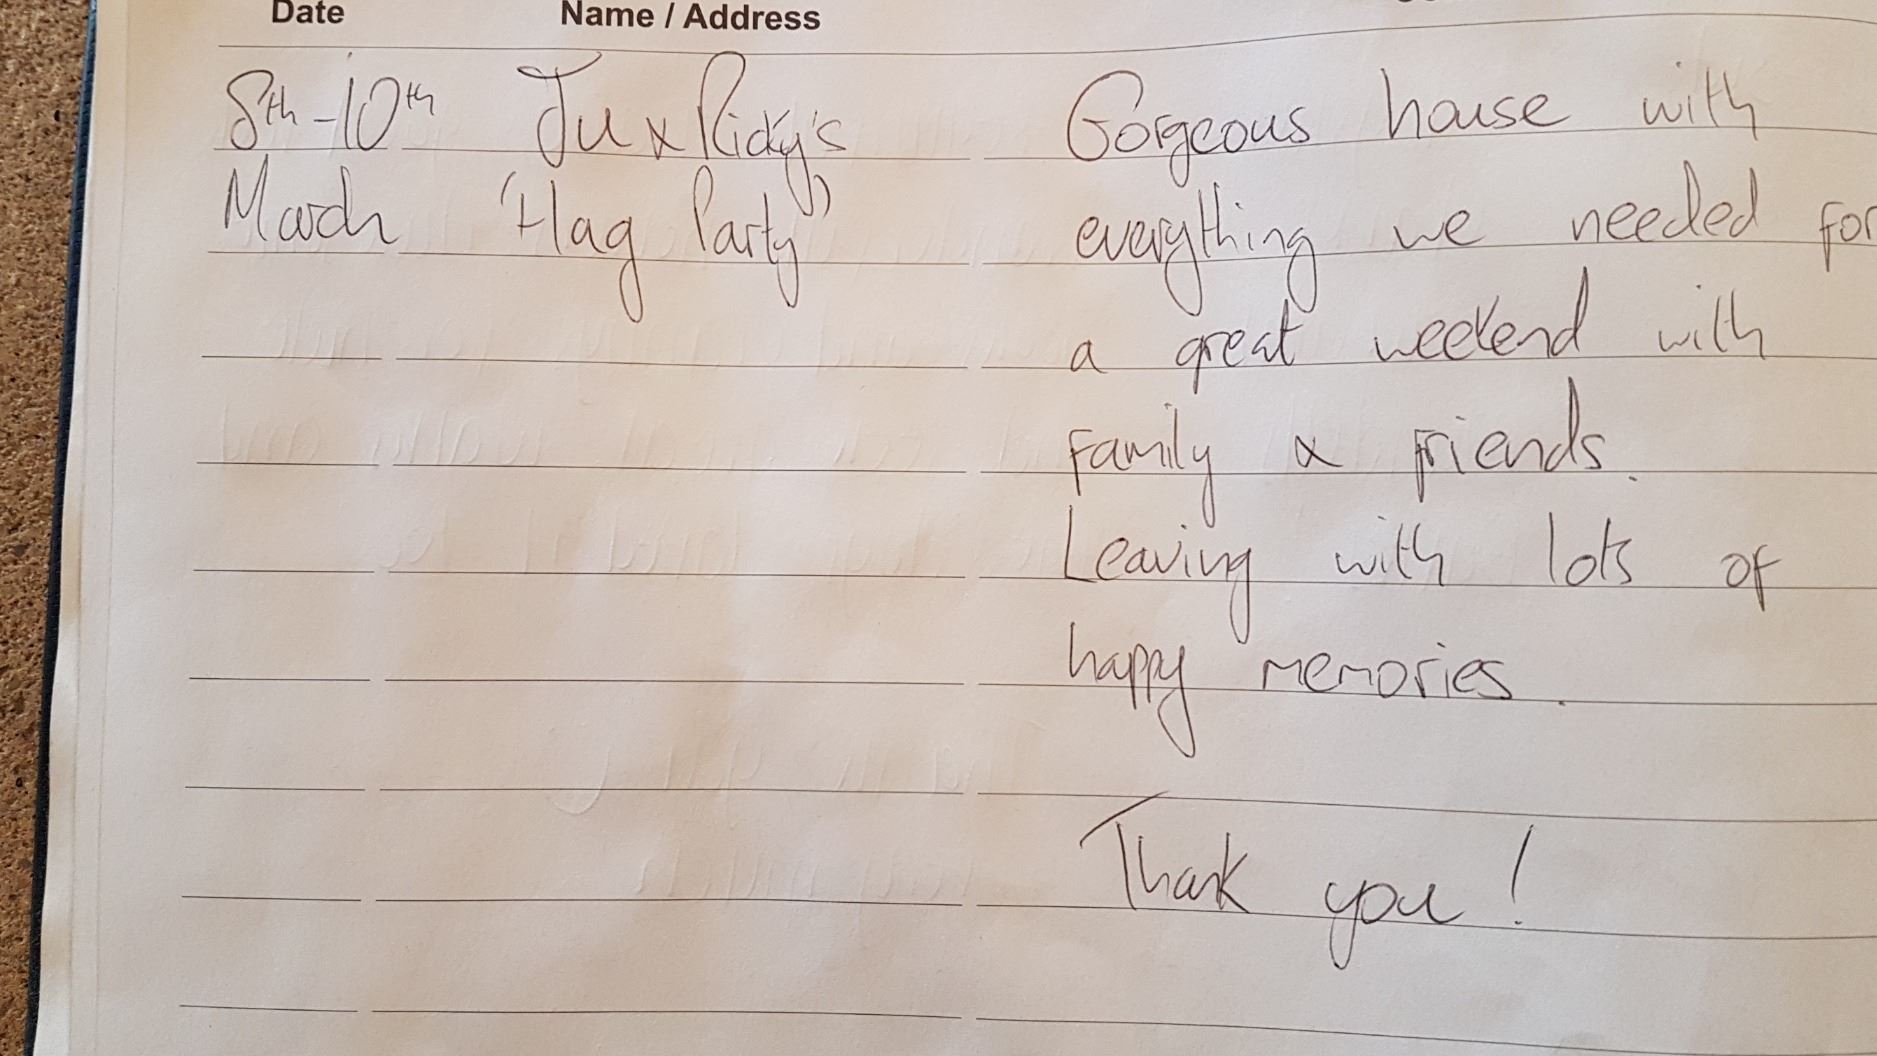 Date Name / Address
8th-10th Ju & Ricky's Gorgeous house with
March 'Hag Party' everything we needed for
a great weekend with
family & friends.
Leaving with lots of
happy memories.
Thank you!